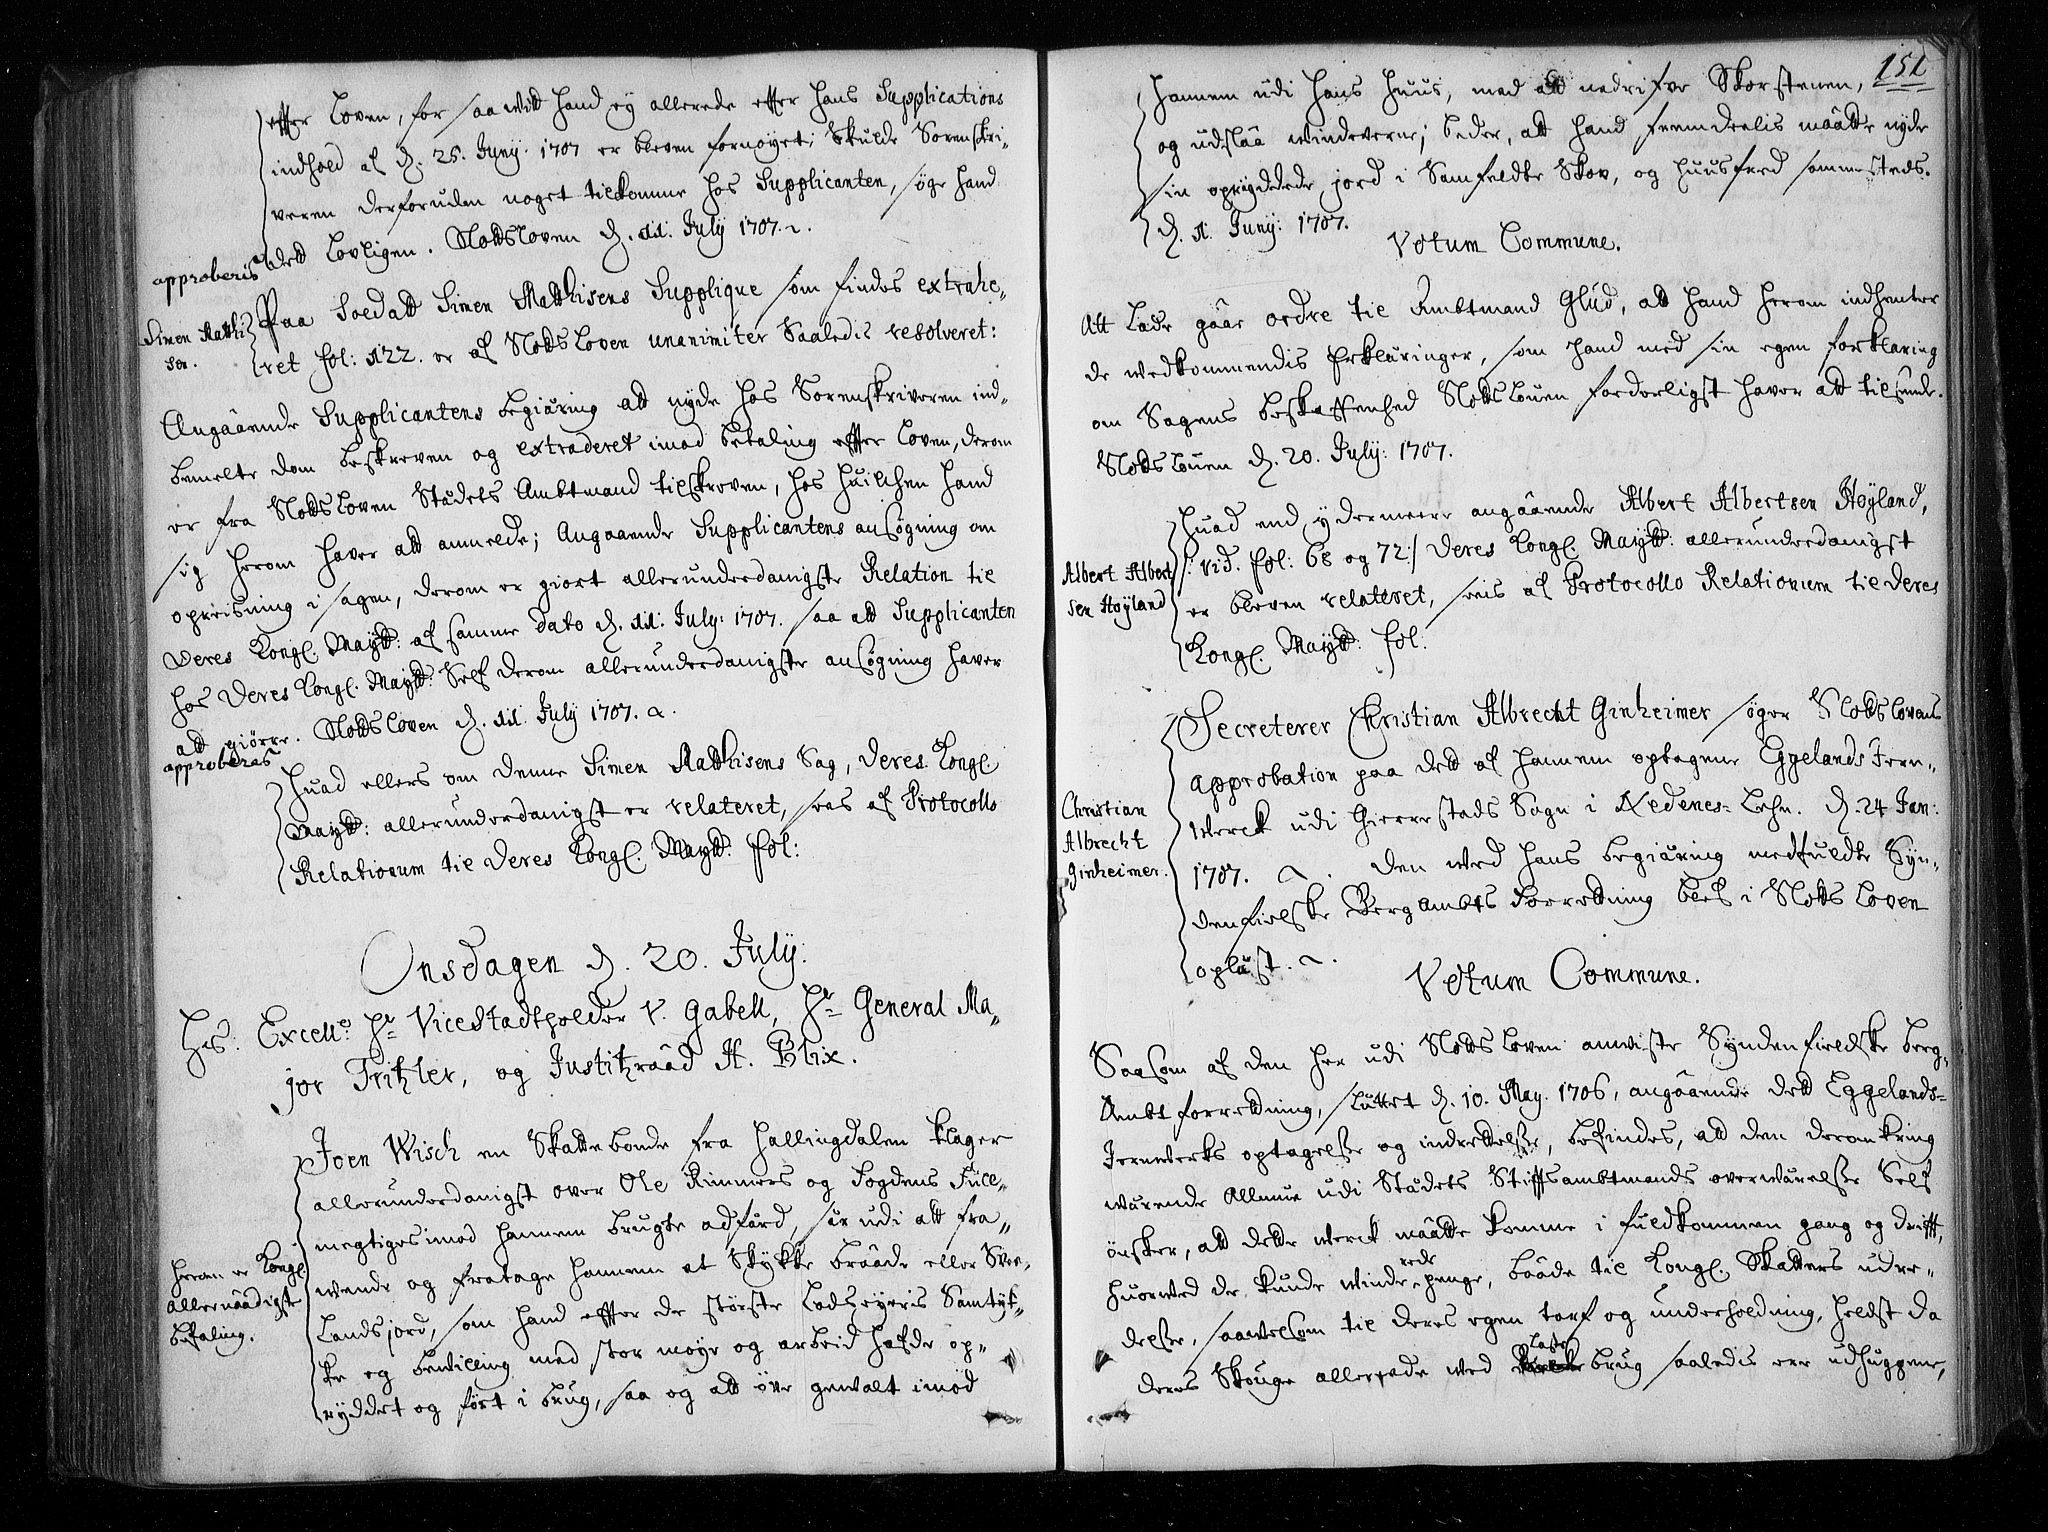 effter Loven, for saa witt hand ey allerede effter hans Supplications
indhold af d. 25. Juny. 1707 er bleven fornøyet; Skulde Sorenskri-
veren derforuden noget tilkomme hos Supplicanten, søge hand
dett Lovligen. Slotdsloven d. 11. July 1707.
approberis
Simen Matthi
sen.
Paa Soldatt Simen Matthisens Supplique som findes extrahe-
ret fol: 122. er af Slottsloven unanimiter Saaledis resolveret:
Angaaende Supplicantens begiæring att nyde hos Sorenskriveren ind-
bemelte dom beskreven og extraderet imod betaling effter Loven, derom
er fra Slottsloven Stædets Ambtmand tilskreven, hos huilchen hand
sig herom haver att anmelde; Angaaende Supplicantens ansøgning om
opreisning i sagen, derom er giort allerunderdanigste Relation til
Deres Kongl. Maytt: af samme dato d. 11. July: 1707. saa att Supplicanten
hos Deres Kongl. Maytt: Self derom allerunderdanigste ansøgning haver
att giørre. Slottsloven d. 11. July 1707.
approberes
Huad ellers om denne Simen Matthisens Sag, Deres Kongl
Maytt: allerunderdanigst er relateret, sees af Protocollo
Relationum til Deres Kongl. Maytt: fol:
Onsdagen d. 20. July:
Hs: Excell: Hr Vicestadtholder v. Gabell, Hr General Ma-
jor Tritzler, og Justitzraad H. Blix.
Joen Wisch en Skattebonde fra Hallingdalen klager
allerunderdanigst over Ole Rimmers og Fogdens Fuld-
megtiges imod hannem brugte adfærd, sær udi att fra-
wende og fratage hannem et Stykke braade eller Svee-
Landsjord, som hand effter de største Lodseyeris Samtyk-
ke og bewilling med stor møye og arbeid hafde op-
ryddet og ført i brug, saa og att öve gewalt imod
herom er Kongl.
allernaadigste
befaling.
151
hannem udi hans huus, med att nedrifve Skorstenen,
og udslaa Windeverne; beder, att hand fremdeelis maatte nyde
sin oprydede jord i Samfeldte Skov, og huusfred sammesteds.
d. 11. Juny: 1707.
Votum Commune.
Att lade gaar ordre til Ambtmand Glud, att hand herom indhenter
de wedkommendis Erklæringer, som hand med sin egen forklaring
om Sagens beskaffenhed Slottsloven forderligst haver att tilsende.
Slottsloven d. 20. July: 1707.
Albert Albert
sen Høyland
Huad end ydermeere angaaende Albert Albertsen Høyland,
/: vid. fol: 68 og 72:/ Deres Kongl. Maytt: allerunderdanigst
er bleven relateret, sees af Protocollo Relationum til Deres
Kongl. Maytt: fol:
Christian
Albrecht
Ginheimer.
Secreterer Christian Albrecht Ginheimer søger Slottslovens
approbation paa dett af hannem optagene Eggelands Jern-
Werck udi Gierrestads Sogn i Nedenes-Lehn. d. 24 Jan:
1707. Den wed hans begiæring medfuldte Syn-
denfielske Bergambts Forretning blef i Slottsloven
oplæst.
Votum Commune.
Saasom af den her udi Slottsloven anwiste Syndenfieldske Berg-
Ambt forretning, sluttet d. 10. May. 1706, angaaende dett Eggelands-
Jernwercks optagelse og indrettelse, befindes, att den deromkring
wærende Allmue udi Stædets Stifftsambtmands overwærelse Self
ønsker, att dette werck maatte komme i fuldkommen gang og drifft,
huorwed de kunde winde rede penge, baade til Kongl. Skatters udre-
delse, saawelsom til deres egen tarf og underholdning, helst da
deres Skouge allereede wed Laste brug saaledis ere udhuggene,